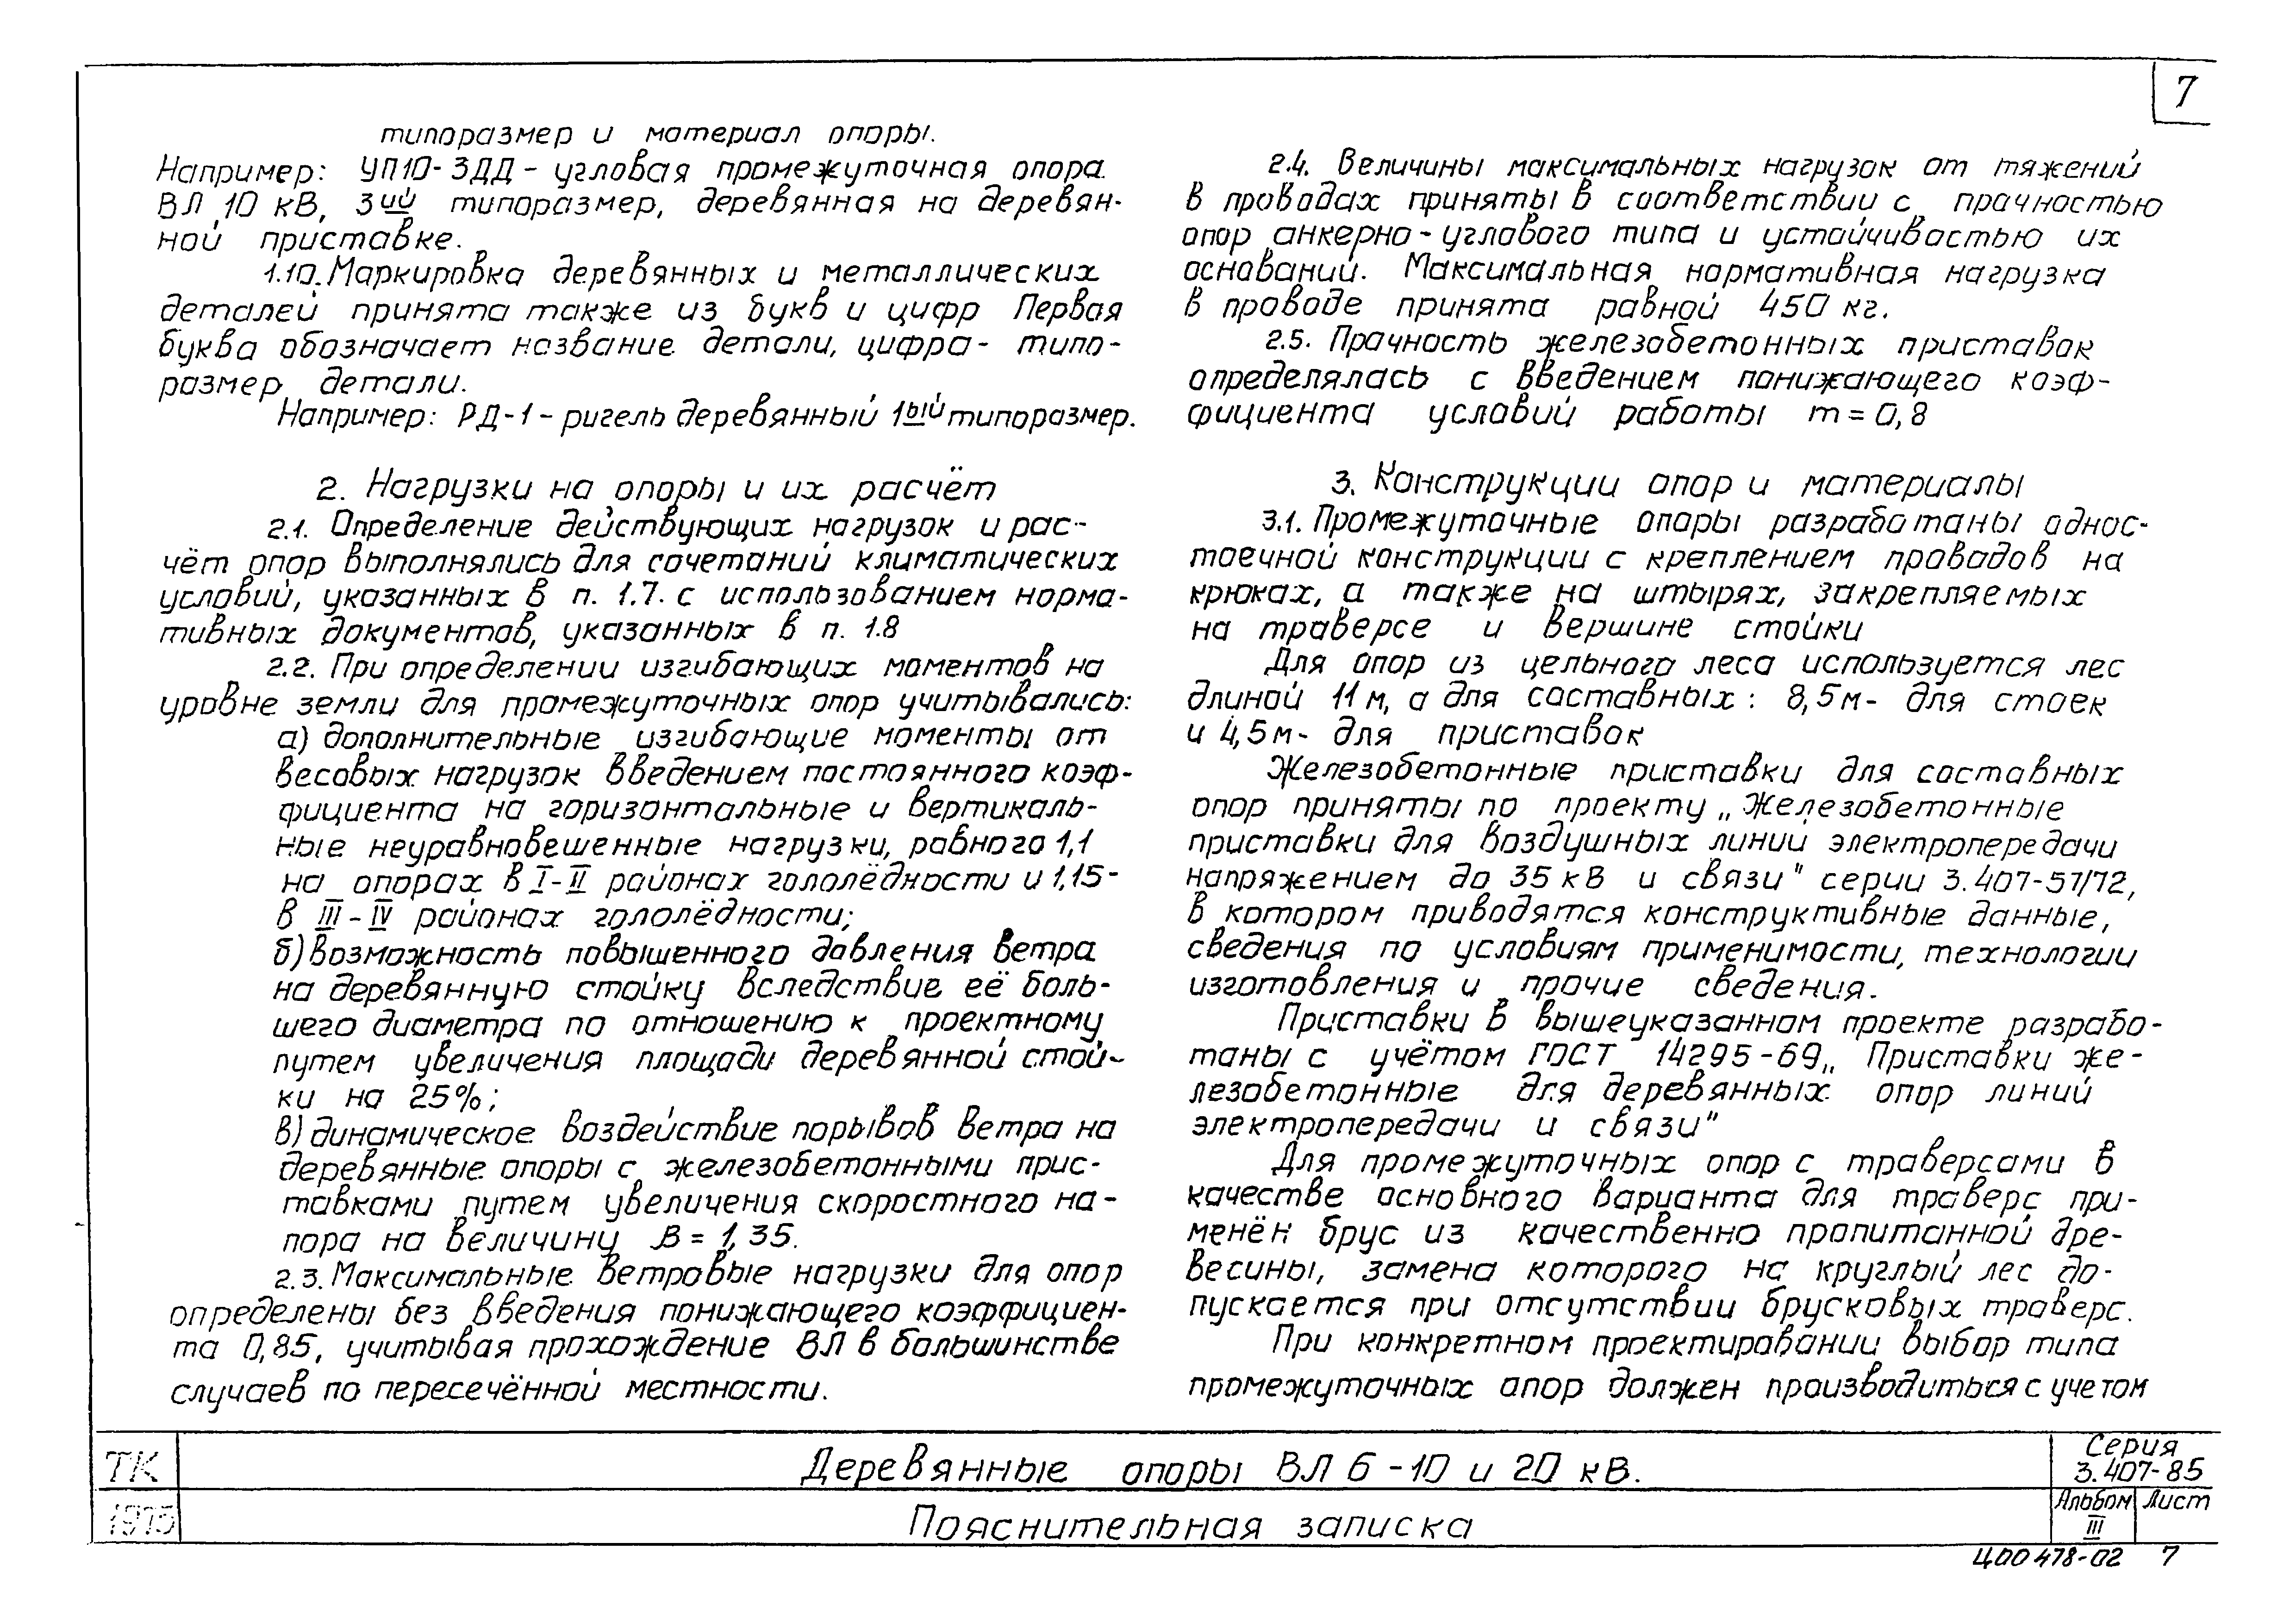 7
типоразмер и материал опоры.
Например: УП10-3ДД - угловая промежуточная опора
ВЛ 10 кВ, 3ий типоразмер, деревянная на деревян-
ной приставке.
1.10. Маркировка деревянных и металлических
деталей принята также из букв и цифр Первая
буква обозначает название детали, цифра - типо-
размер детали.
Например: РД-1 - ригель деревянный 1ый типоразмер.
2. Нагрузки на опоры и их расчёт
2.1. Определение действующих нагрузок и рас-
чёт опор выполнялись для сочетаний климатических
условий, указанных в п. 1.7. с использованием норма-
тивных документов, указанных в п. 1.8
2.2. При определении изгибающих моментов на
уровне земли для промежуточных опор учитывались:
а) дополнительные изгибающие моменты от
весовых нагрузок введением постоянного коэф-
фициента на горизонтальные и вертикаль-
ные неуравновешенные нагрузки, равного 1,1
на опорах в I-II районах гололёдности и 1,15-
в III-IV районах гололёдности;
б) возможность повышенного давления ветра
на деревянную стойку вследствие её боль-
шего диаметра по отношению к проектному
путем увеличения площади деревянной стой-
ки на 25%;
в) динамическое воздействие порывов ветра на
деревянные опоры с железобетонными прис-
тавками путем увеличения скоростного на-
пора на величину β = 1,35.
2.3. Максимальные ветровые нагрузки для опор
определены без введения понижающего коэффициен-
та 0,85, учитывая прохождение ВЛ в большинстве
случаев по пересечённой местности.
2.4. Величины максимальных нагрузок от тяжений
в проводах приняты в соответствии с прочностью
опор анкерно-углового типа и устойчивостью их
оснований. Максимальная нормативная нагрузка
в проводе принята равной 450 кг.
2.5. Прочность железобетонных приставок
определялась с введением понижающего коэф-
фициента условий работы m = 0,8
3. Конструкции опор и материалы
3.1. Промежуточные опоры разработаны однос-
тоечной конструкции с креплением проводов на
крюках, а также на штырях, закрепляемых
на траверсе и вершине стойки
Для опор из цельного леса используется лес
длиной 11 м, а для составных: 8,5м- для стоек
и 4,5м- для приставок
Железобетонные приставки для составных
опор приняты по проекту „Железобетонные
приставки для воздушных линий электропередачи
напряжением до 35 кВ и связи" серии 3.407-57/72,
в котором приводятся конструктивные данные,
сведения по условиям применимости, технологии
изготовления и прочие сведения.
Приставки в вышеуказанном проекте разрабо-
таны с учётом ГОСТ 14295-69„ Приставки же-
лезобетонные для деревянных опор линий
электропередачи и связи"
Для промежуточных опор с траверсами в
качестве основного варианта для траверс при-
менён брус из качественно пропитанной дре-
весины, замена которого на круглый лес до-
пускается при отсутствии брусковых траверс.
При конкретном проектировании выбор типа
промежуточных опор должен производиться с учетом
ТК
1975
Деревянные опоры ВЛ 6-10 и 20 кВ.
Пояснительная записка
Серия
3.407-85
Альбом Лист
III
Ц00478-02 7